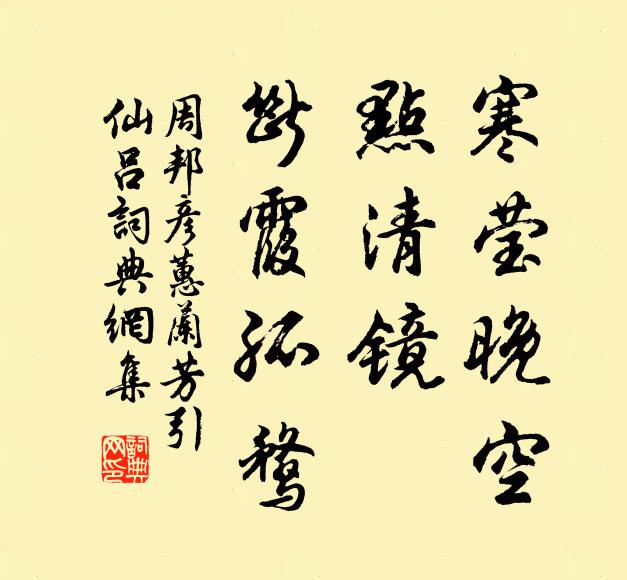 寒莹晚空
點清镜
斷霞孤鶩
周邦彦蕙蘭芳引
仙吕詞典網集
詞典网印